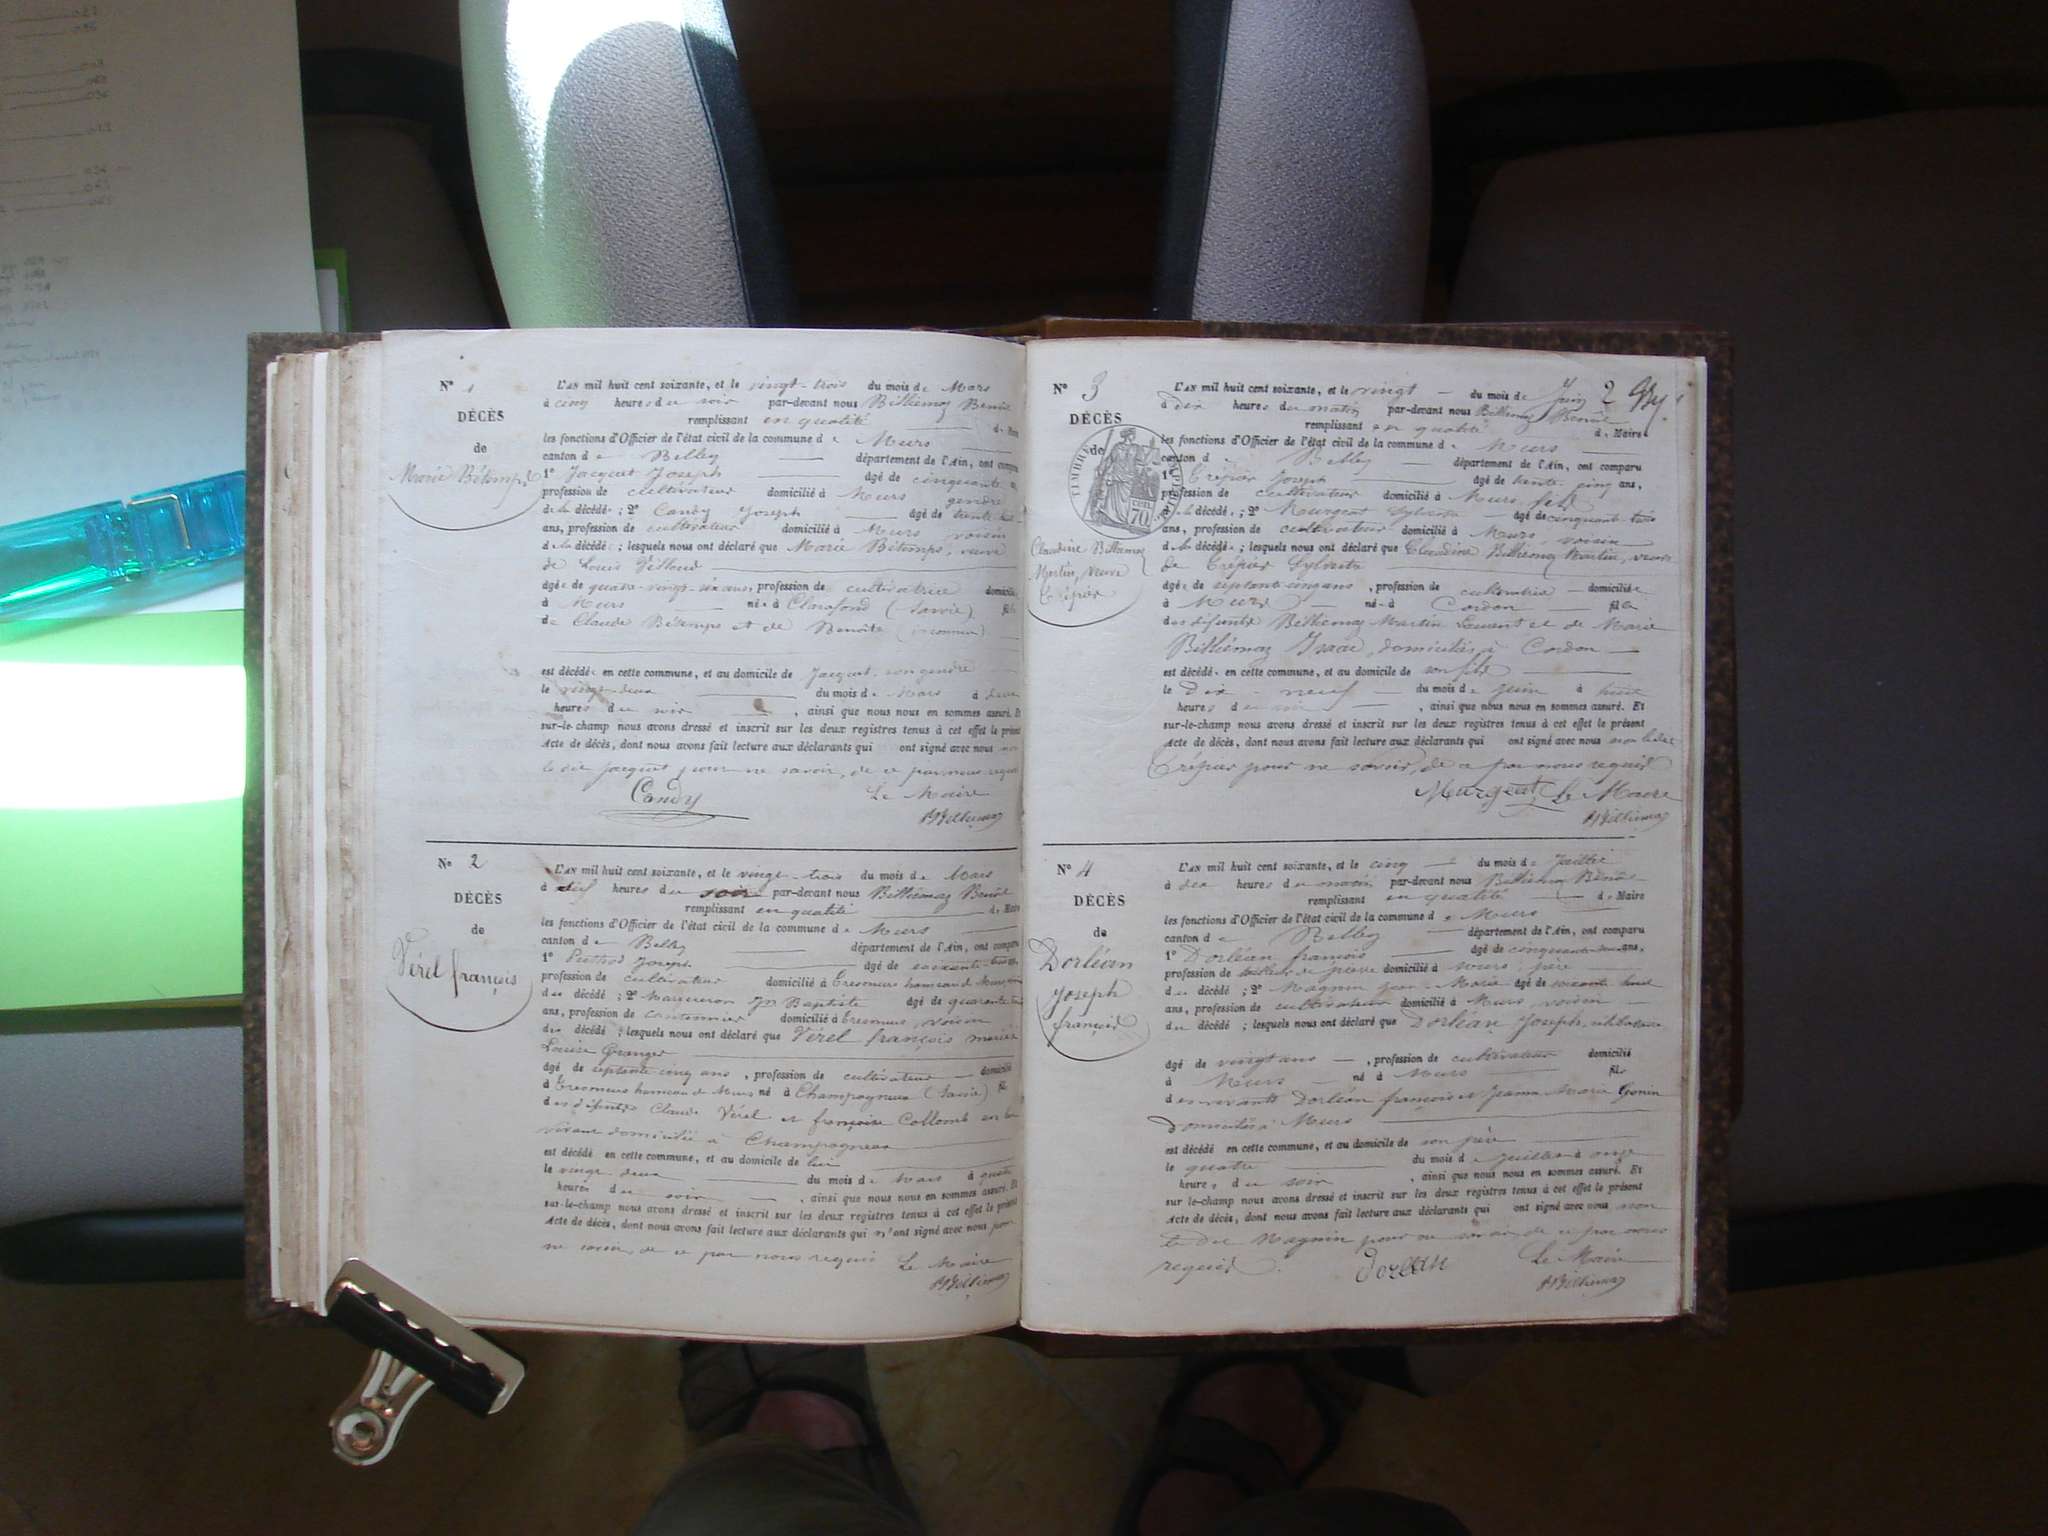 N° 1
DÉCÈS
de
Marie Bétemps
L'AN mil huit cent soixante, et le vingt-trois du mois de Mars
à cinq heures du soir par-devant nous Billiemaz Benoit
remplissant en qualité de Maire
les fonctions d'Officier de l'état civil de la commune de Murs
canton de Belley département de l'Ain, ont comparu
1° Jacquet Joseph âgé de cinquante
profession de cultivateur domicilié à Murs gendre
de la décédée; 2° Candy Joseph âgé de trente
ans, profession de cultivateur domicilié à Murs, voisin
de la décédée; lesquels nous ont déclaré que Marie Bétemps, veuve
de Louis
âgée de quatre-vingt-six ans, profession de cultivatrice domiciliée
à Murs née à Clarafond (Savoie) fille
de Claude Bétemps et de Benoite (inconnu)
est décédée en cette commune, et au domicile de Jacquet, son gendre
le vingt-deux du mois de Mars à deux
heures du soir, ainsi que nous nous en sommes assuré. Et
sur-le-champ nous avons dressé et inscrit sur les deux registres tenus à cet effet le présent
Acte de décès, dont nous avons fait lecture aux déclarants qui ont signé avec nous non
le dit Jacquet pour ne savoir, de ce par nous requis
Candy Le Maire
Billiemaz
N° 2
DÉCÈS
de
Vérel françois
L'AN mil huit cent soixante, et le vingt-trois du mois de Mars
à heures du soir par-devant nous Billiemaz Benoit
remplissant en qualité de Maire
les fonctions d'Officier de l'état civil de la commune de Murs
canton de Belley département de l'Ain, ont comparu
1° Joseph âgé de soixante
profession de cultivateur domicilié à Cresmurs hameau de Murs
du décédé; 2° Jn Baptiste âgé de quarante
ans, profession de cantonnier domicilié à Cresmurs, voisin
du décédé; lesquels nous ont déclaré que Vérel françois marié à
Louise Granger
âgé de septante cinq ans, profession de cultivateur domicilié
à Cresmurs hameau de Murs né à Champagneux (Savoie) fils
des défunts Claude Vérel et françoise Collomb en leur
vivant domiciliés à Champagneux
est décédé en cette commune, et au domicile de lui
le vingt-deux du mois de Mars à quatre
heures du soir, ainsi que nous nous en sommes assuré. Et
sur-le-champ nous avons dressé et inscrit sur les deux registres tenus à cet effet le présent
Acte de décès, dont nous avons fait lecture aux déclarants qui n'ont signé avec nous pour
ne savoir, de ce par nous requis Le Maire
Billiemaz
2
N° 3
DÉCÈS
de
TIMBRE IMPÉRIAL
70 cen
Claudine Billiemaz
Martin, veuve
Crépier
L'AN mil huit cent soixante, et le vingt du mois de Juin
à dix heures du matin par-devant nous Billiemaz Benoit
remplissant en qualité de Maire
les fonctions d'Officier de l'état civil de la commune de Murs
canton de Belley département de l'Ain, ont comparu
1° Crépier Joseph âgé de trente-cinq ans,
profession de cultivateur domicilié à Murs, fils
de la décédée; 2° Murgent Sylvestre âgé de cinquante-trois
ans, profession de cultivateur domicilié à Murs, voisin
de la décédée; lesquels nous ont déclaré que Claudine Billiemaz Martin, veuve
de Crépier Sylvestre
âgée de septante-cinq ans, profession de cultivatrice domiciliée
à Murs née à Cordon fille
des défunts Billiemaz Martin Laurent et de Marie
Billiémaz Isaac, domiciliés à Cordon
est décédée en cette commune, et au domicile de son fils
le dix-neuf du mois de juin à huit
heures du soir, ainsi que nous nous en sommes assuré. Et
sur-le-champ nous avons dressé et inscrit sur les deux registres tenus à cet effet le présent
Acte de décès, dont nous avons fait lecture aux déclarants qui ont signé avec nous non le dit
Crépier pour ne savoir, de ce par nous requis
Murgent Le Maire
Billiemaz
N° 4
DÉCÈS
de
Dorléan
Joseph
françois
L'AN mil huit cent soixante, et le cinq du mois de Juillet
à dix heures du matin par-devant nous Billiemaz Benoit
remplissant en qualité de Maire
les fonctions d'Officier de l'état civil de la commune de Murs
canton de Belley département de l'Ain, ont comparu
1° Dorléan françois âgé de cinquante-deux ans,
profession de tailleur de pierre domicilié à Murs, père
du décédé; 2° Magnin Jean-Marie âgé de soixante huit
ans, profession de cultivateur domicilié à Murs, voisin
du décédé; lesquels nous ont déclaré que Dorléan Joseph, célibataire
âgé de vingt ans, profession de cultivateur domicilié
à Murs né à Murs fils
des vivants Dorléan françois et Jeanne Marie Gonin
domiciliés à Murs
est décédé en cette commune, et au domicile de son père
le quatre du mois de Juillet à onze
heures du soir, ainsi que nous nous en sommes assuré. Et
sur-le-champ nous avons dressé et inscrit sur les deux registres tenus à cet effet le présent
Acte de décès, dont nous avons fait lecture aux déclarants qui ont signé avec nous non
le dit Magnin pour ne savoir de ce par nous
requis. Dorléan Le Maire
Billiemaz